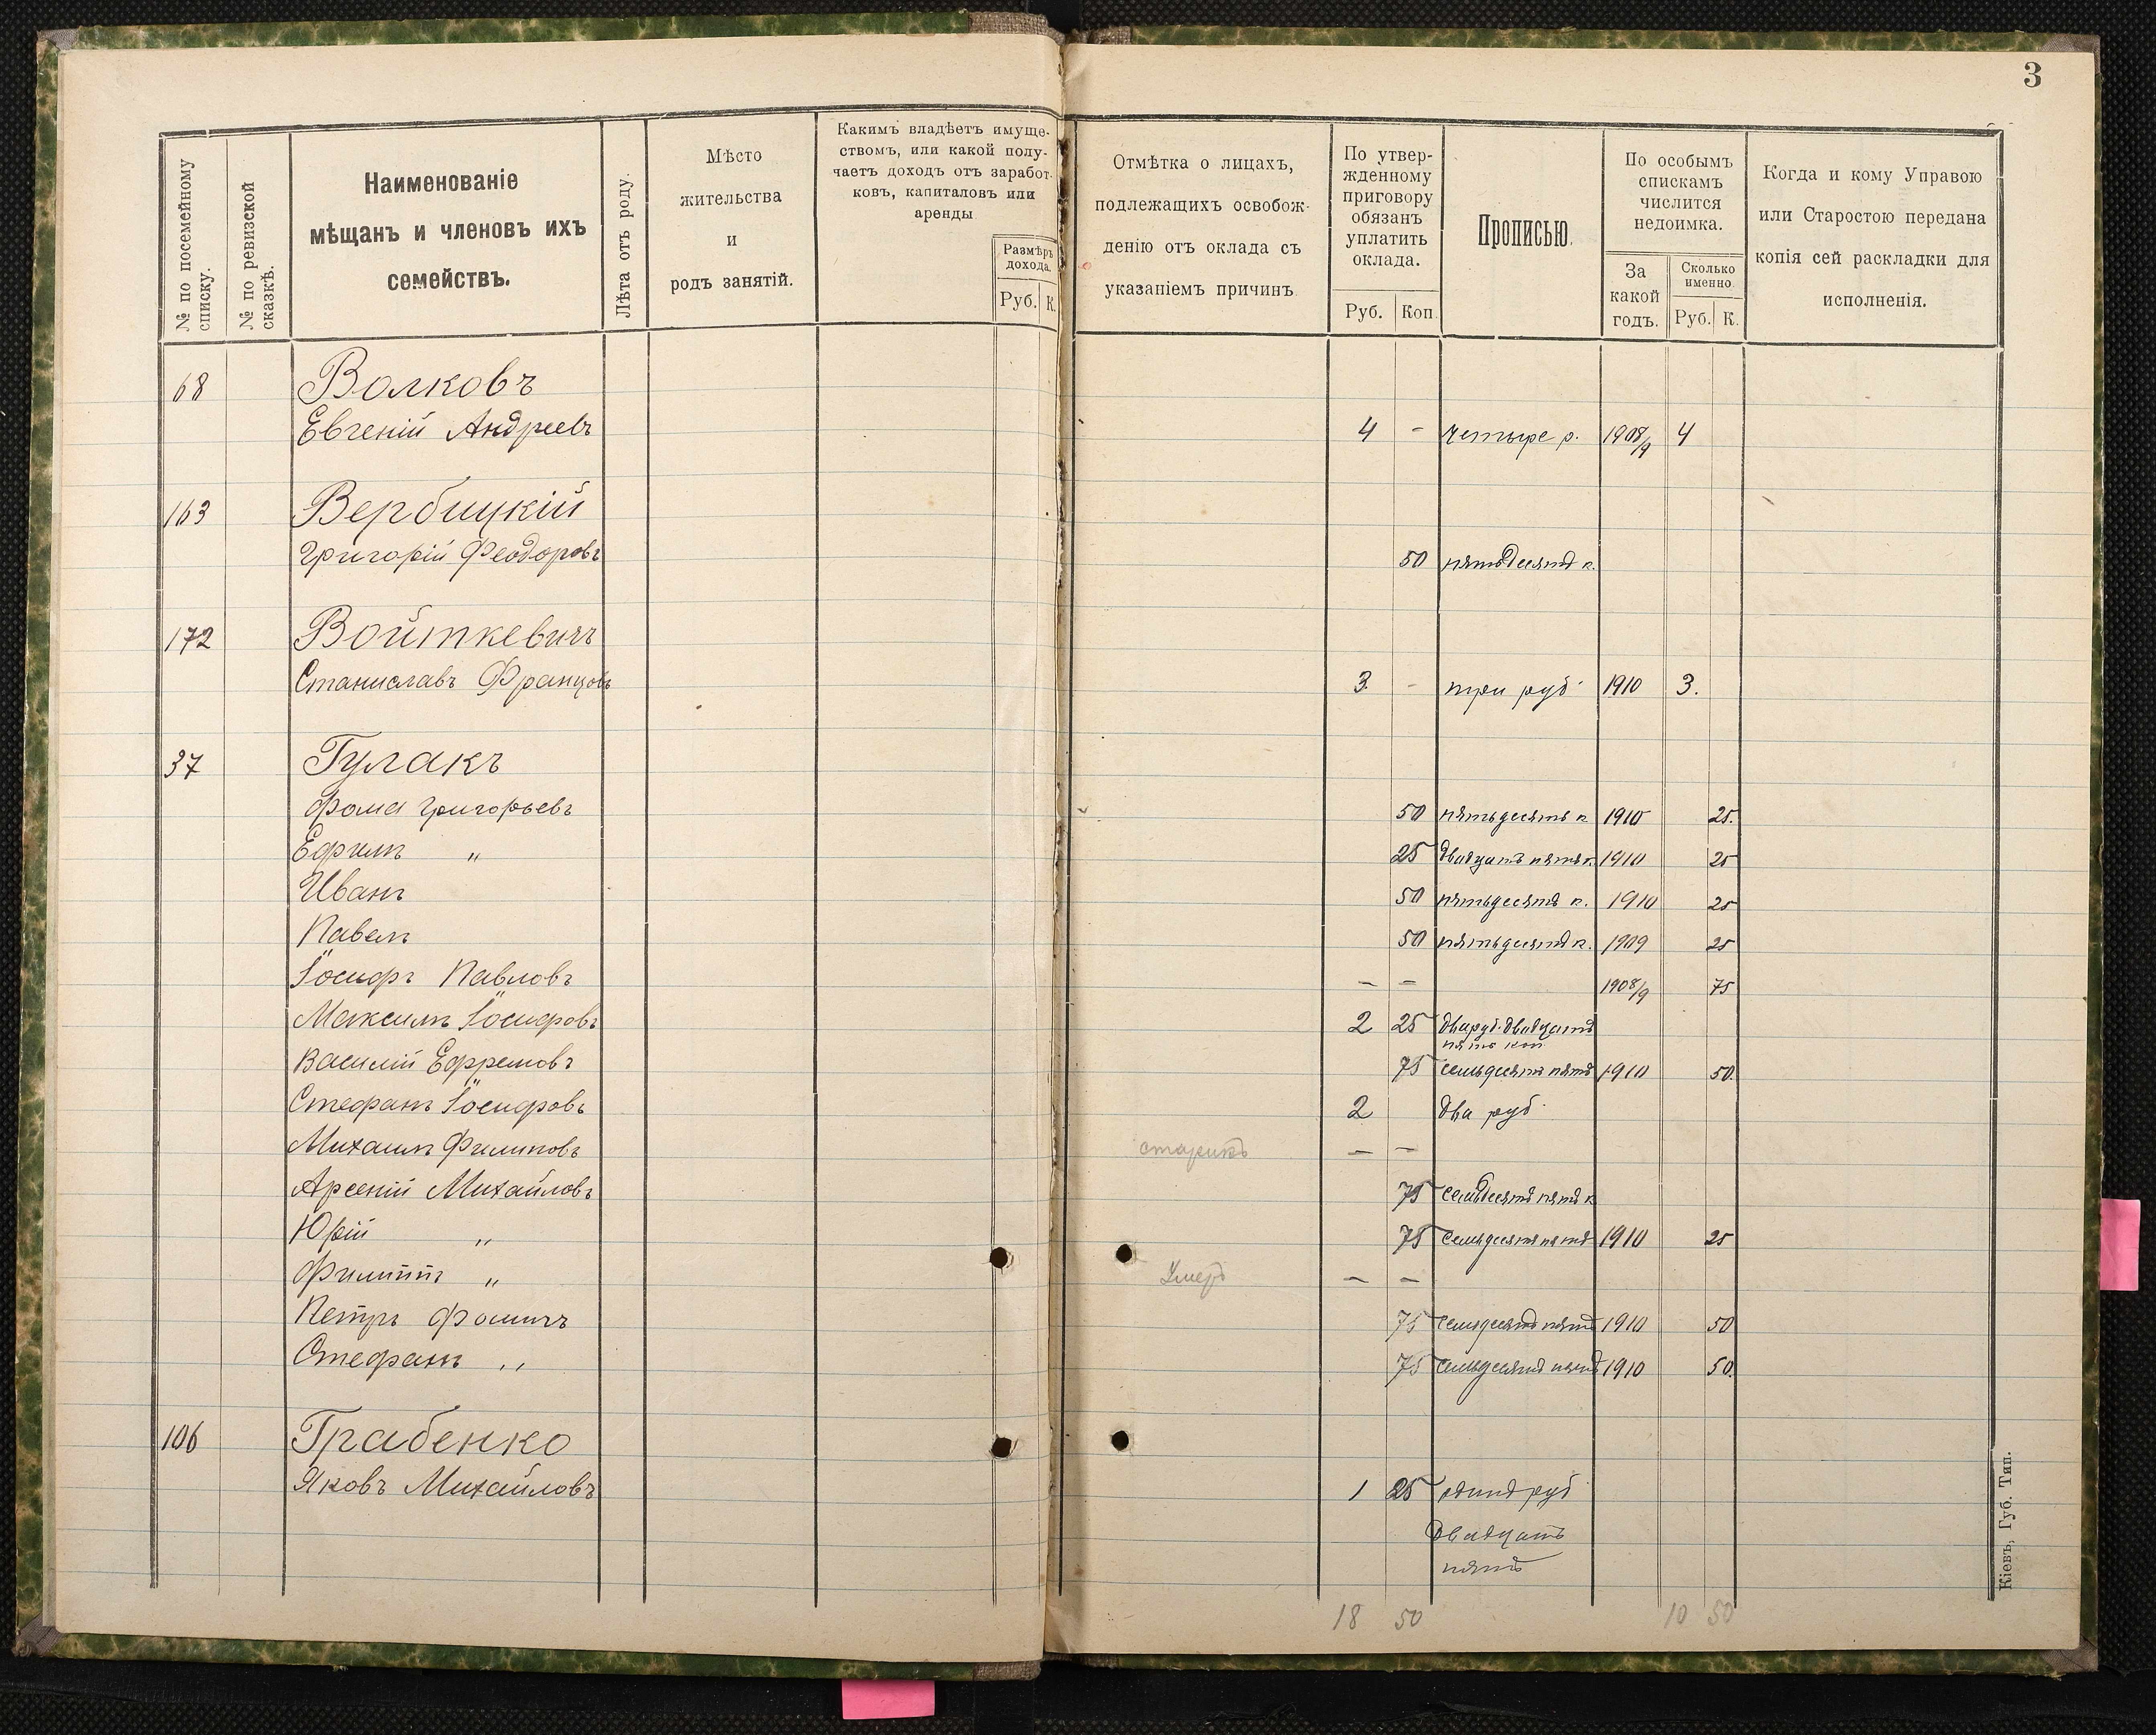 3
№ по посемейному
списку.
№ по ревизской
сказкѣ.
Наименованіе
мѣщанъ и членовъ ихъ
семействъ.
Лѣта отъ роду.
Мѣсто
жительства
и
родъ занятій.
Какимъ владѣетъ имуще-
ствомъ, или какой полу-
чаетъ доходъ отъ заработ-
ковъ, капиталовъ или
аренды
Размѣръ
дохода.
Руб. К.
Отмѣтка о лицахъ,
подлежащихъ освобож-
денію отъ оклада съ
указаніемъ причинъ
По утвер-
жденному
приговору
обязанъ
уплатить
оклада.
Руб. Коп.
Прописью.
По особымъ
спискамъ
числится
недоимка.
За
какой
годъ.
Сколько
именно
Руб. К.
Когда и кому Управою
или Старостою передана
копія сей раскладки для
исполненія.
68 Волковъ
Евгеній Андреевъ 4 - четыре р. 1908/9 4
163 Вербицкій
Григорій Феодоровъ 50 пятьдесятъ к.
172 Войткевичъ
Станиславъ Францовъ 3. - три руб 1910 3.
37 Гулакъ
Фома Григорьевъ 50 пятьдесятъ к 1910 25.
Ефимъ „ 25 двадцать пять к. 1910 25
Иванъ 50 пятьдесятъ к. 1910 25
Павелъ 50 пятьдесятъ к. 1909 25
Іосифъ Павловъ — — 1908/9 75
Максимъ Іосифовъ 2 25 два руб. двадцать
пять коп
Василій Ефремовъ 75 семьдесятъ пять 1910 50.
Стефанъ Іосифовъ 2 два руб.
Михаилъ Филиповъ старикъ — —
Арсеній Михайловъ 75 семьдесятъ пять к
Юрій „ 75 семьдесятъ пять 1910 25
Филиппъ „ Умеръ — —
Петръ Фомичъ 75 семьдесятъ пять 1910 50
Стефанъ „ 75 семьдесятъ пять 1910 50.
106 Грабенко
Яковъ Михайловъ 1 25 одинъ руб
двадцать
пять
18 50 10 50
Кіевъ, Губ. Тип.